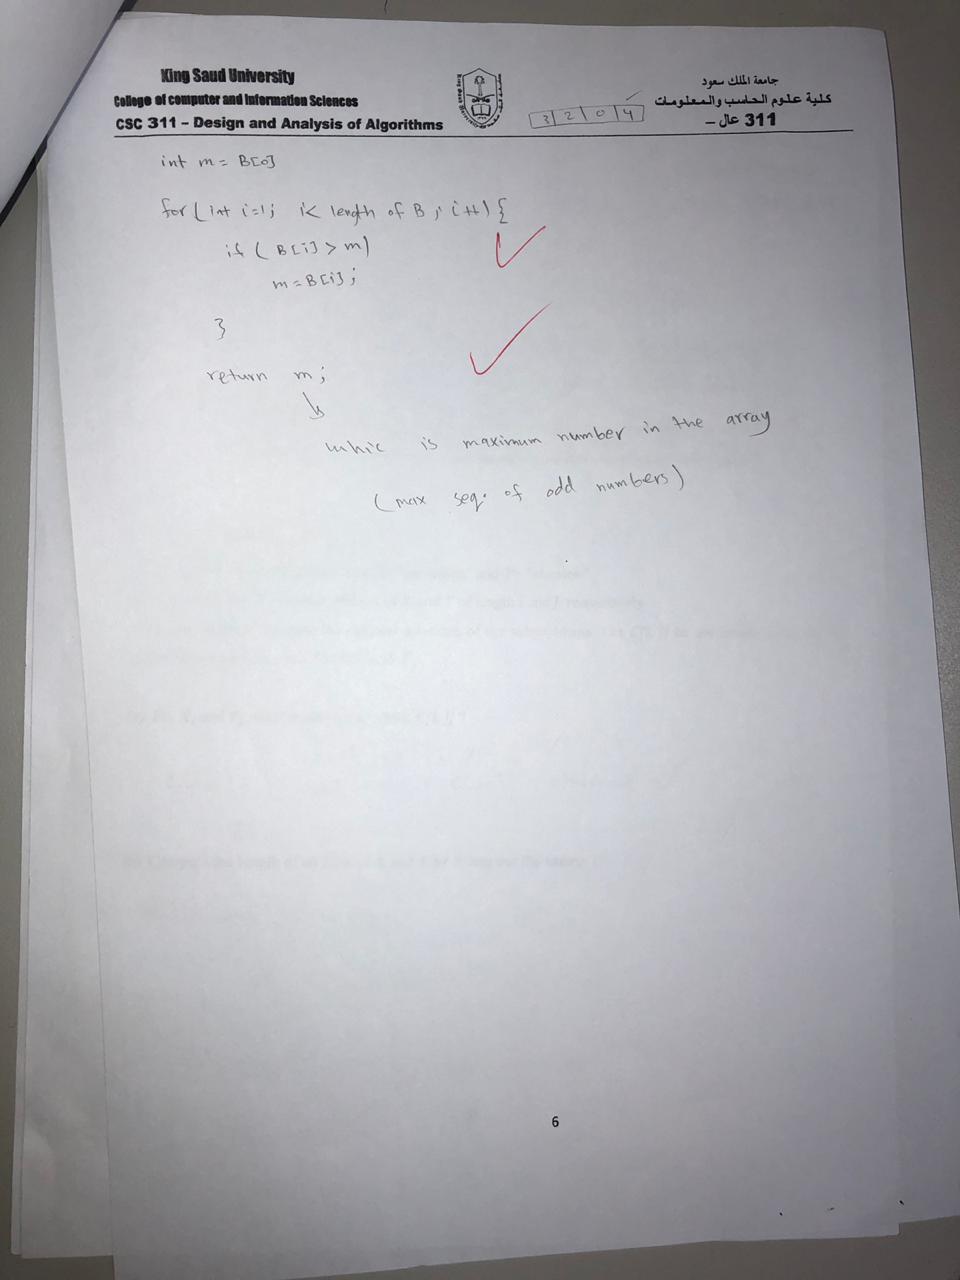 King Saud University
College of computer and Information Sciences
CSC 311 – Design and Analysis of Algorithms
جامعة الملك سعود
كلية علوم الحاسب والمعلومات
311 عال –
3 2 0 4
int m = B[0]
for (int i=1; i< length of B ; i++) {
if ( B[i] > m)
m = B[i] ;
}
return m ;
whic is maximum number in the array
(max seq. of odd numbers)
6